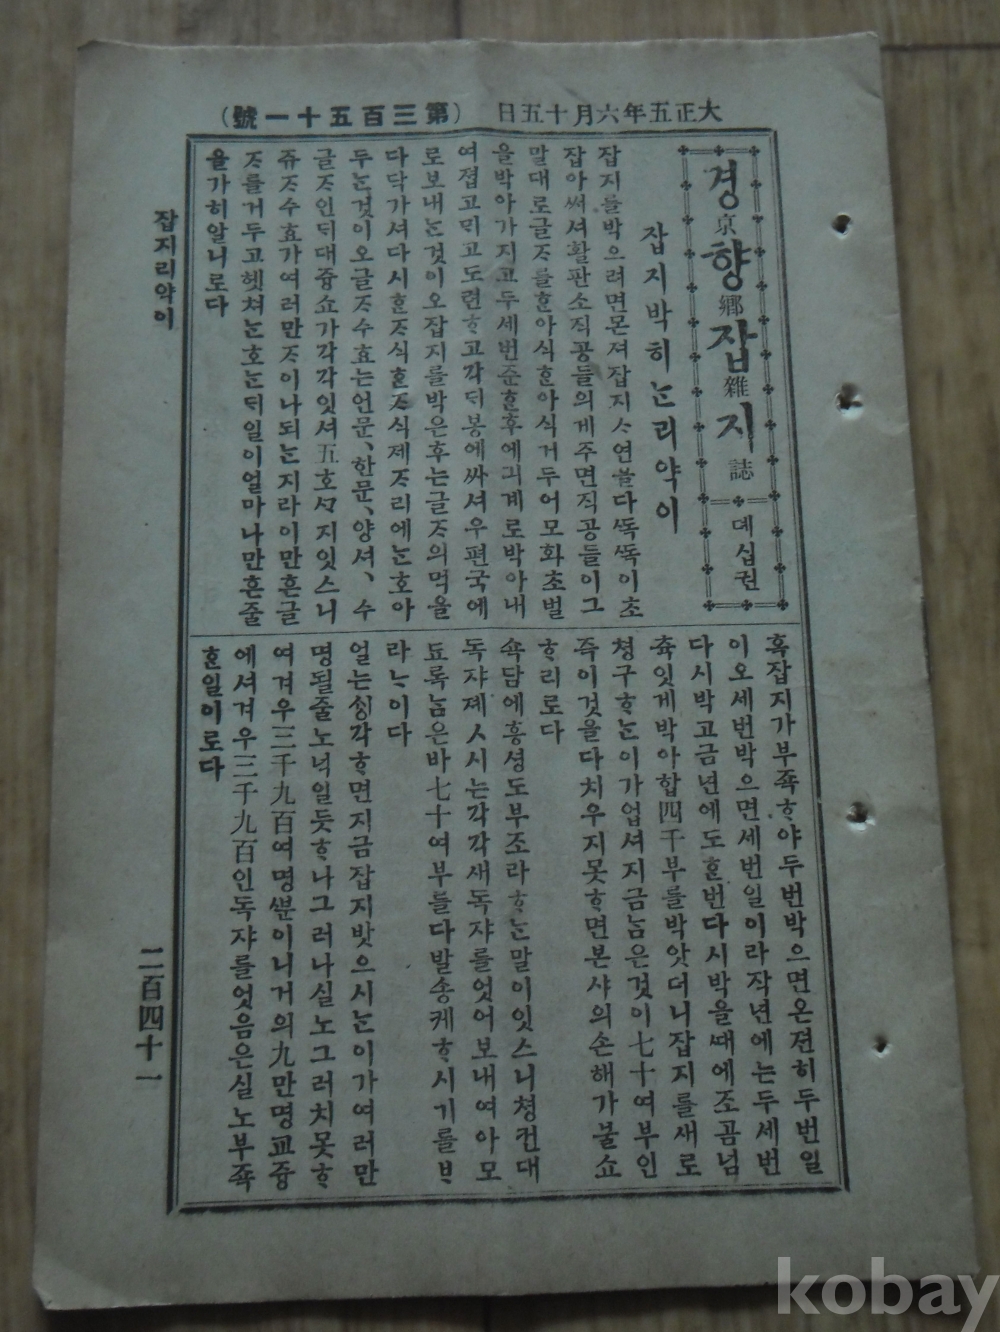 大正五年六月十五日 (第三百五十一號)
경京향鄕잡雜지誌 뎨십권
잡지박히ᄂᆞᆫ리약이
잡지를박으려면몬져잡지ᄉᆞ연을다ᄯᅩᆨᄯᅩᆨ이초
잡아써셔활판소직공들의게주면직공들이그
말대로글ᄌᆞ를ᄒᆞᆫ아식ᄒᆞᆫ아식거두어모화초벌
을박아가지고두세번준ᄒᆞᆫ후에긔계로박아내
여졉고ᄆᆡ고도련ᄒᆞ고각ᄃᆡ봉에싸셔우편국에
로보내ᄂᆞᆫ것이오잡지를박은후는글ᄌᆞ의먹을
다닥가셔다시ᄒᆞᆫᄌᆞ식ᄒᆞᆫᄌᆞ식제ᄌᆞ리에ᄂᆞᆫ호아
두ᄂᆞᆫ것이오글ᄌᆞ수효는언문、한문、양셔、수
글ᄌᆞ인ᄃᆡ대즁쇼가각각잇셔五호ᄭᆞ지잇스니
쥬ᄌᆞ수효가여러만ᄌᆞ이나되ᄂᆞᆫ지라이만흔글
ᄌᆞ를거두고헷쳐ᄂᆞᆫ호ᄂᆞᆫᄃᆡ일이얼마나만흔줄
을가히알니로다
혹잡지가부죡ᄒᆞ야두번박으면온젼히두번일
이오세번박으면세번일이라작년에는두세번
다시박고금년에도ᄒᆞᆫ번다시박을ᄯᅢ에조곰넘
츅잇게박아합四千부를박앗더니잡지를새로
쳥구ᄒᆞᄂᆞᆫ이가업셔지금ᄂᆞᆷ은것이七十여부인
즉이것을다치우지못ᄒᆞ면본샤의손해가불쇼
ᄒᆞ리로다
쇽담에흥셩도부조라ᄒᆞᄂᆞᆫ말이잇스니쳥컨대
독쟈졔ㅅ시는각각새독쟈를엇어보내여아모
됴록ᄂᆞᆷ은바七十여부를다발송케ᄒᆞ시기를ᄇᆞ
라ᄂᆞ이다
얼는ᄉᆡᆼ각ᄒᆞ면지금잡지밧으시ᄂᆞᆫ이가여러만
명될줄노녁일듯ᄒᆞ나그러나실노그러치못ᄒᆞ
여겨우三千九百여명ᄲᅮᆫ이니거의九만명교즁
에셔겨우三千九百인독쟈를엇음은실노부죡
ᄒᆞᆫ일이로다
잡지리약이
二百四十一
kobay